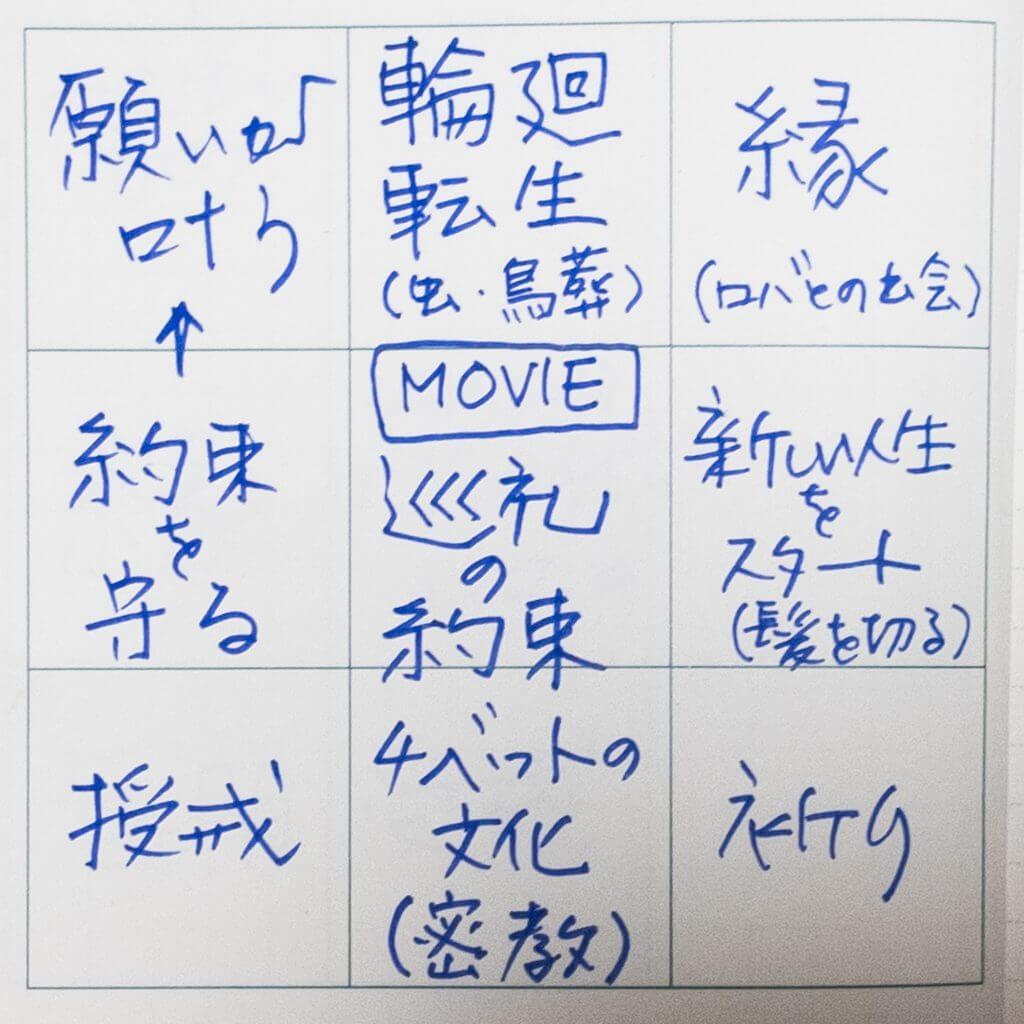 願いが
叶う
輪廻
転生
(虫・鳥葬)
縁
(ロバとの出会)
↑
約束
を
守る
MOVIE
巡礼
の
約束
新しい人生
を
スタート
(髪を切る)
授戒
チベットの
文化
(密教)
祈り